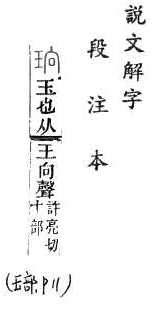 說文解字
段注本
珦 玉也从王向聲 許亮切十部
(玉部.P11)